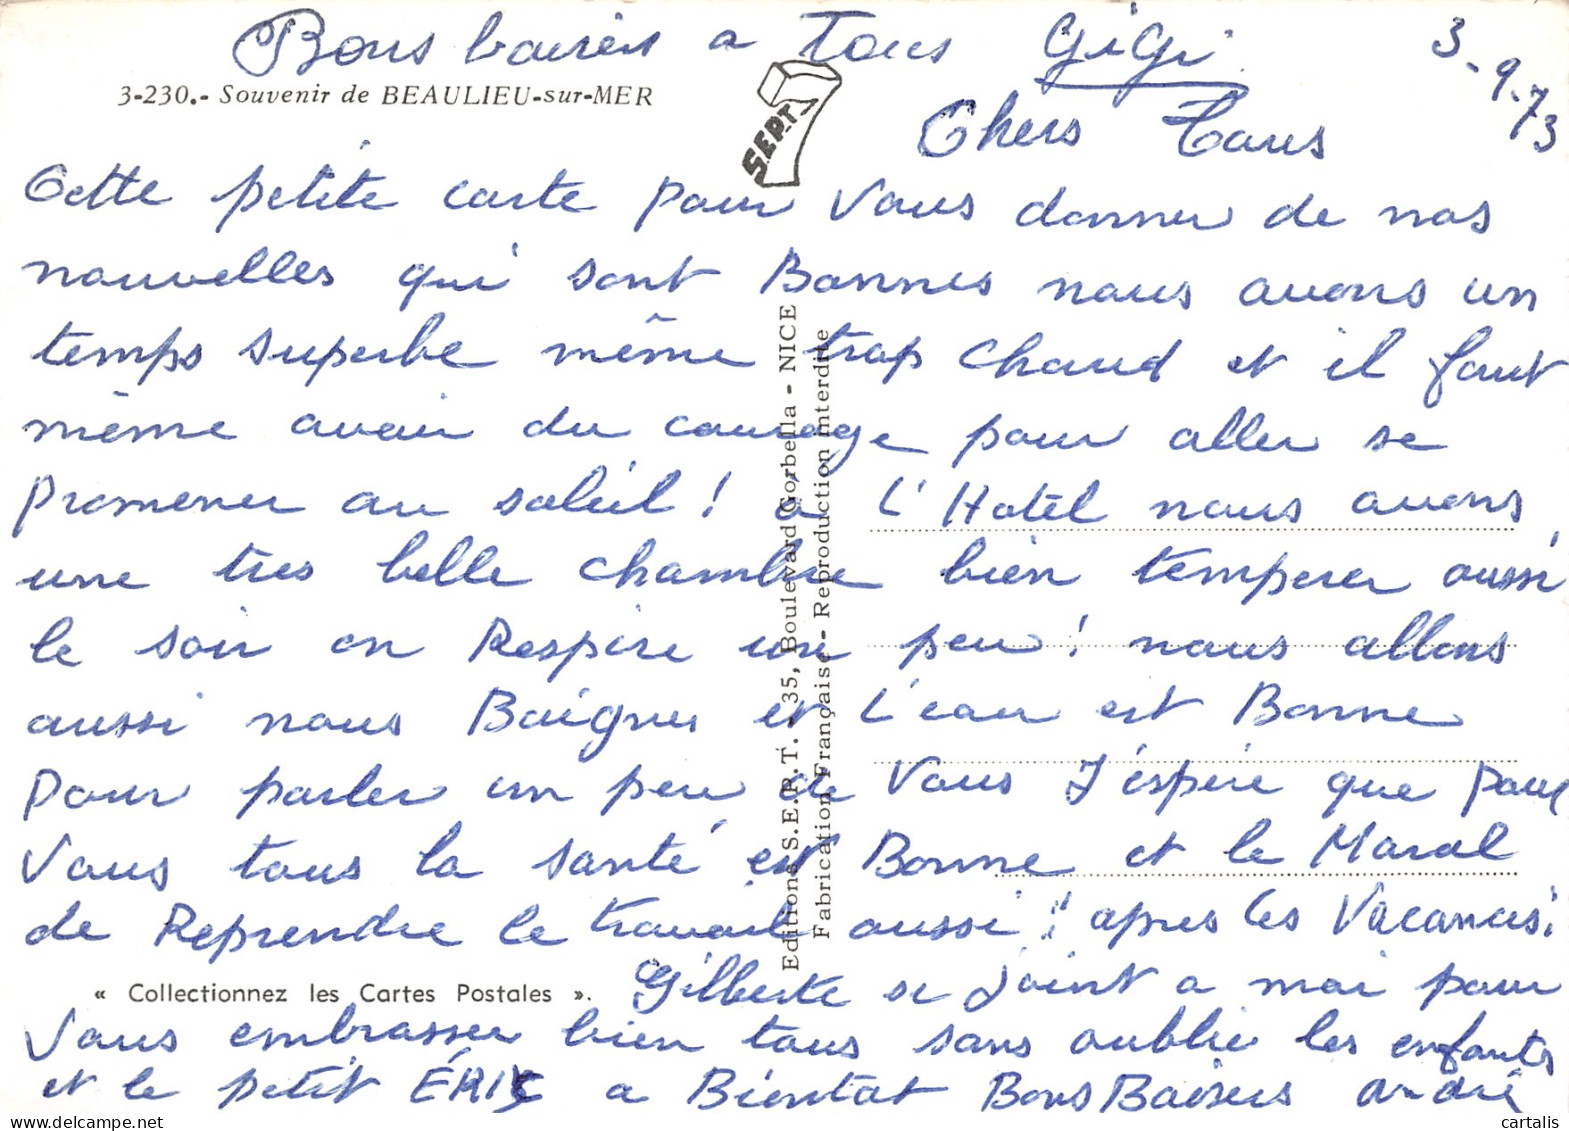 Bons baisers a Tous GiGi 3-9-73
3-230.- Souvenir de BEAULIEU-sur-MER
S.E.P.T.
Chers Tous
Cette petite carte pour vous donner de nos
nouvelles qui sont Bonnes nous avons un
temps superbe même trop chaud et il faut
même avoir du courage pour aller se
promener au soleil ! à L'Hotel nous avons
une tres belle chambre bien temperer aussi
le soir on Respire un peu ! nous allons
aussi nous Baigner et L'eau est Bonne
Pour parler un peu de Vous J'éspère que pour
Vous tous la santé est Bonne et le Moral
de Reprendre le travail aussi ! apres les Vacances.
« Collectionnez les Cartes Postales ». Gilberte se joint a moi pour
Vous embrasser bien tous sans oublie les enfants
et le petit ÉRIC a Bientot Bons Baisers André
Editions S.E.P.T. - 35, Boulevard Gorbella - NICE
Fabrication Française - Reproduction interdite
cartalis